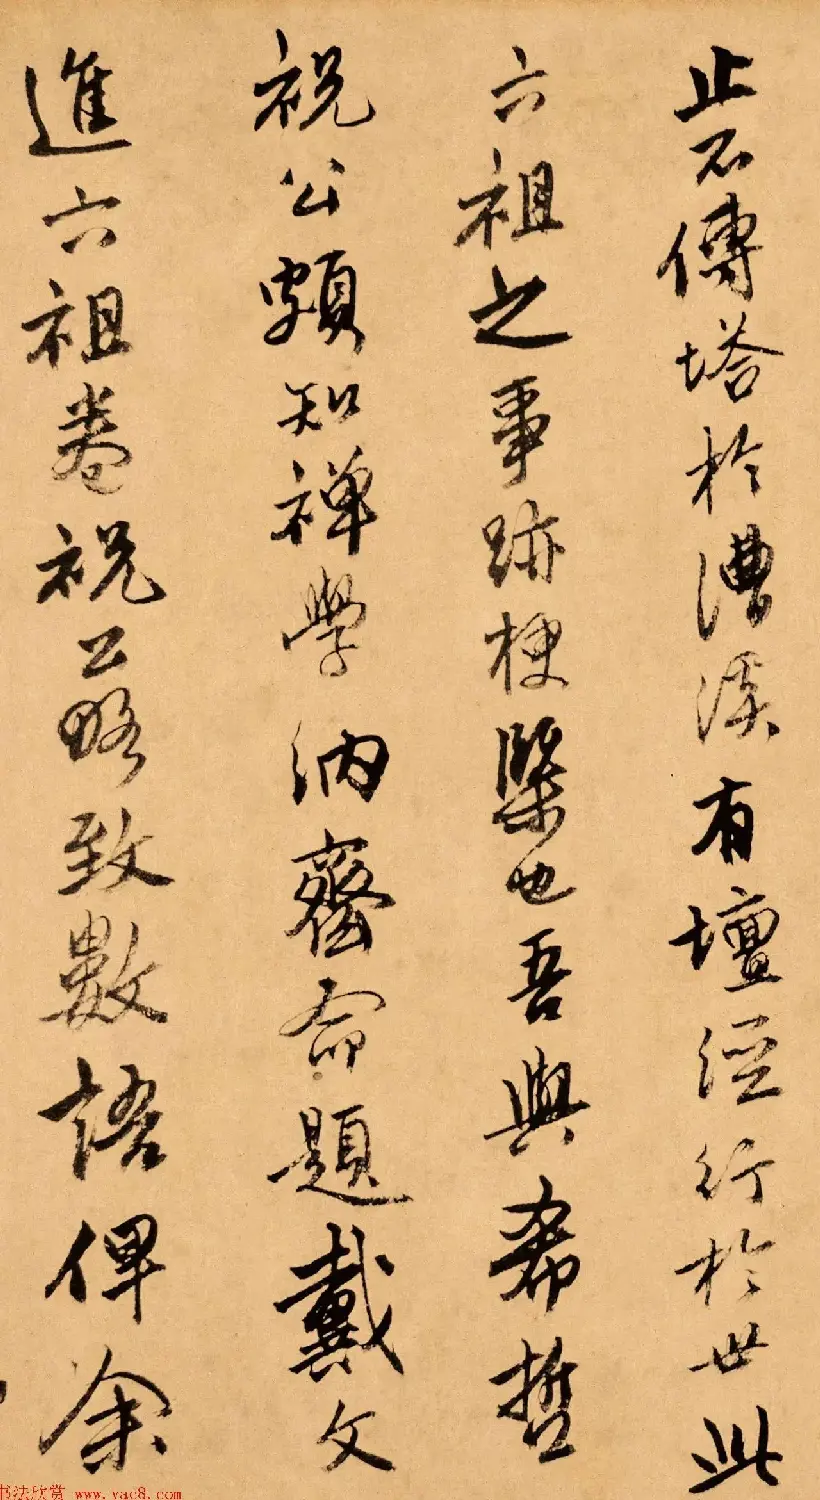 止不傳塔於漕溪有壇經行於世此
六祖之事跡梗槩也吾與希哲
祝公頗知禪學納齋命題戴文
進六祖卷祝公略致數語俾余
书法欣赏 www.yac8.com